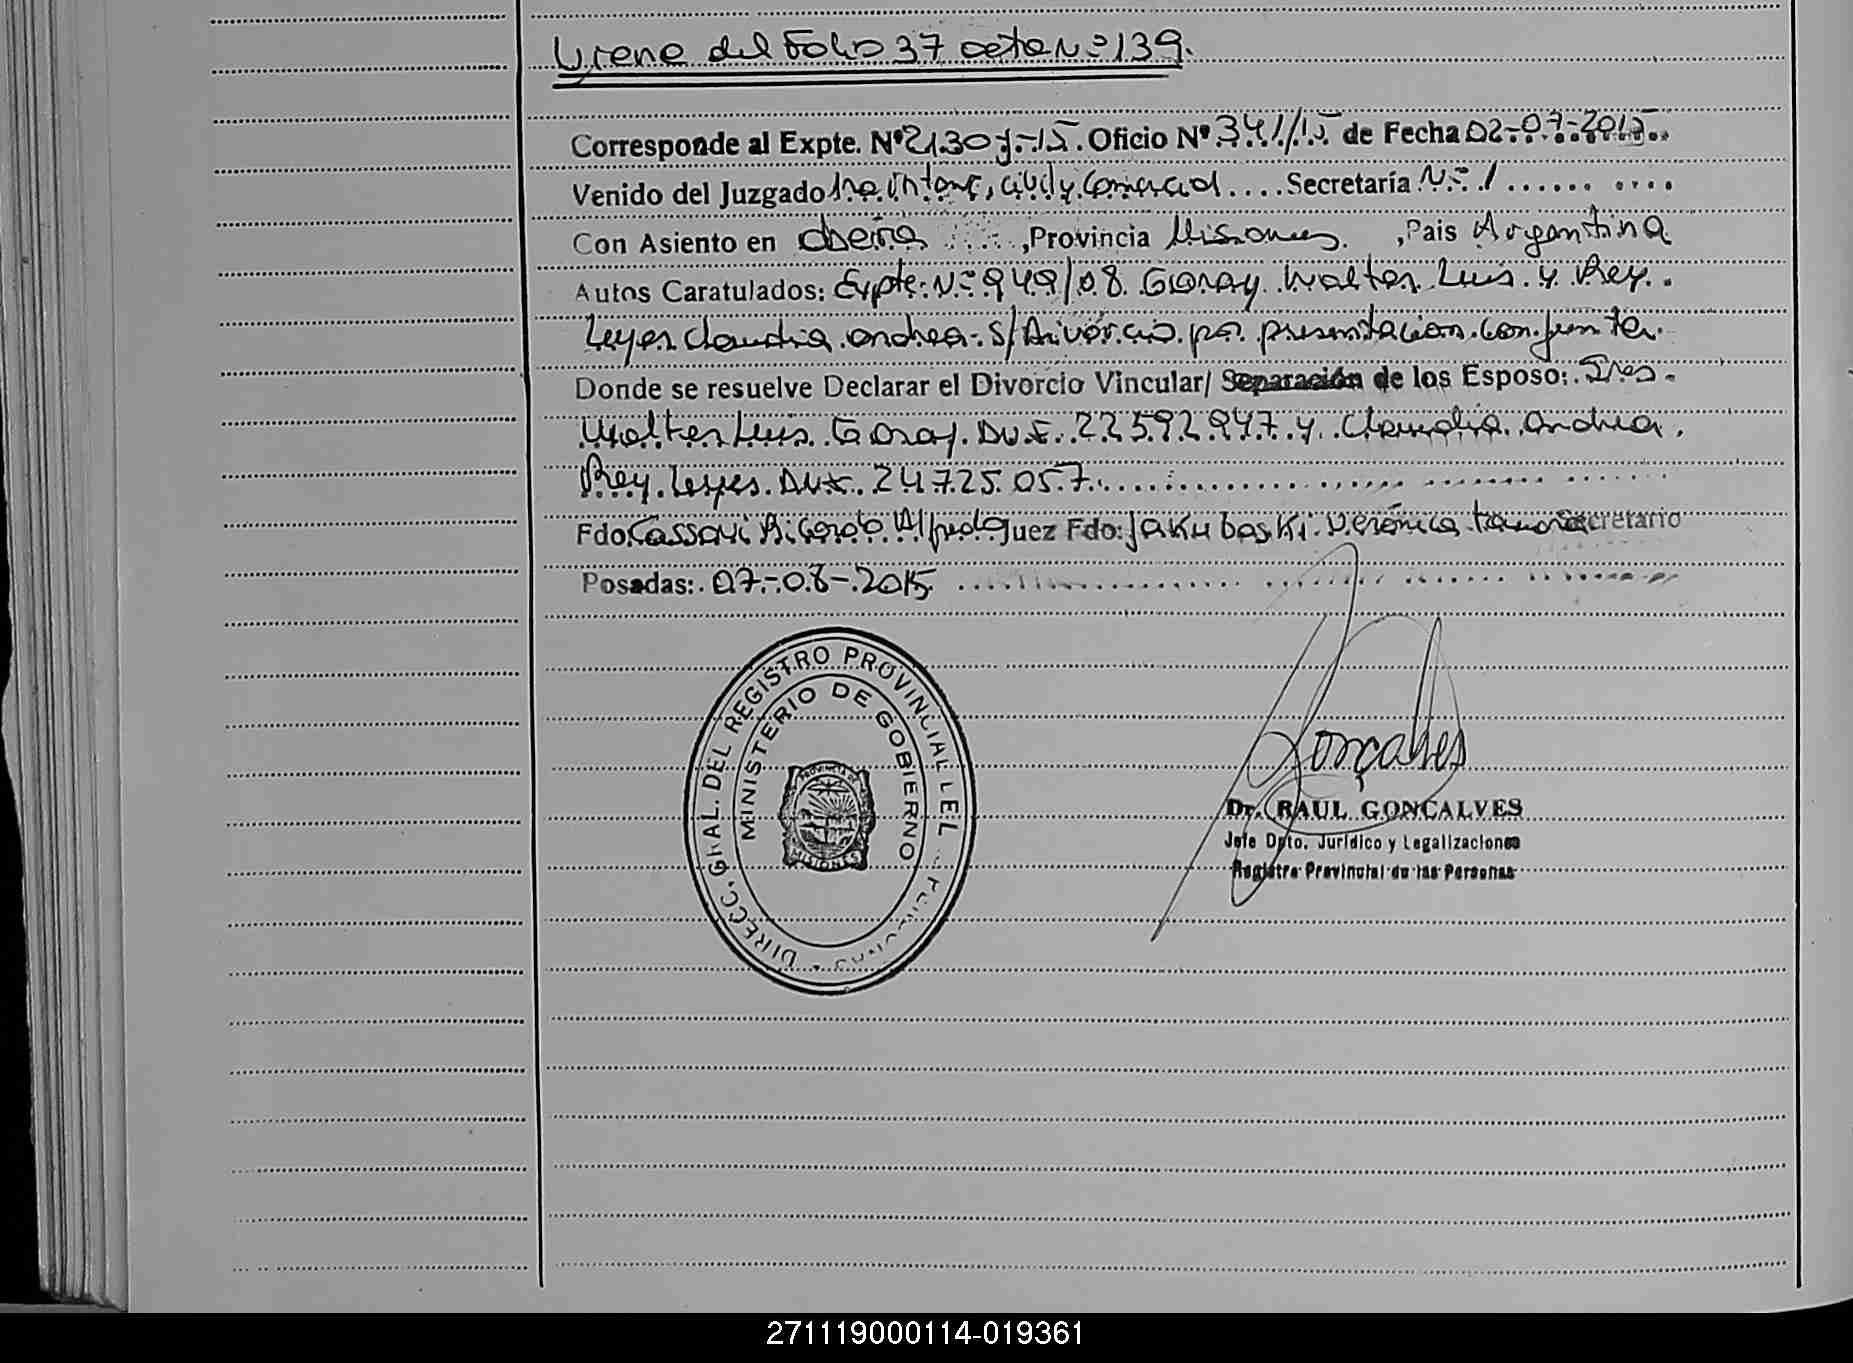 Viene del Folio 37 acta Nº 139.
Corresponde al Expte. Nº 2130-J-15. Oficio Nº 341/15 de Fecha 02-07-2015
Venido del Juzgado 1ra Instanc, civil y Comercial .... Secretaría Nº 1
Con Asiento en Oberá ,Provincia Misiones. ,Pais Argentina
Autos Caratulados: Expte. Nº 949/08 Goray Walter Luis y Rey
Leyes Claudia Andrea S/Divorcio por presentacion conjunta
Donde se resuelve Declarar el Divorcio Vincular/ Separación de los Esposo: Sres.
Walter Luis Goray DNI. 22592947 y Claudia Andrea
Rey Leyes DNI. 24725057
Fdo. Ricardo Alfredo Juez Fdo: Jakuboski Verónica Secretario
Posadas: 07-08-2015
DIRECC. GRAL. DEL REGISTRO PROVINCIAL DE
MINISTERIO DE GOBIERNO
PROVINCIA DE
MISIONES
Gonçalves
Dr. RAUL GONCALVES
Jefe Dpto. Jurídico y Legalizaciones
Registro Provincial de las Personas
271119000114-019361